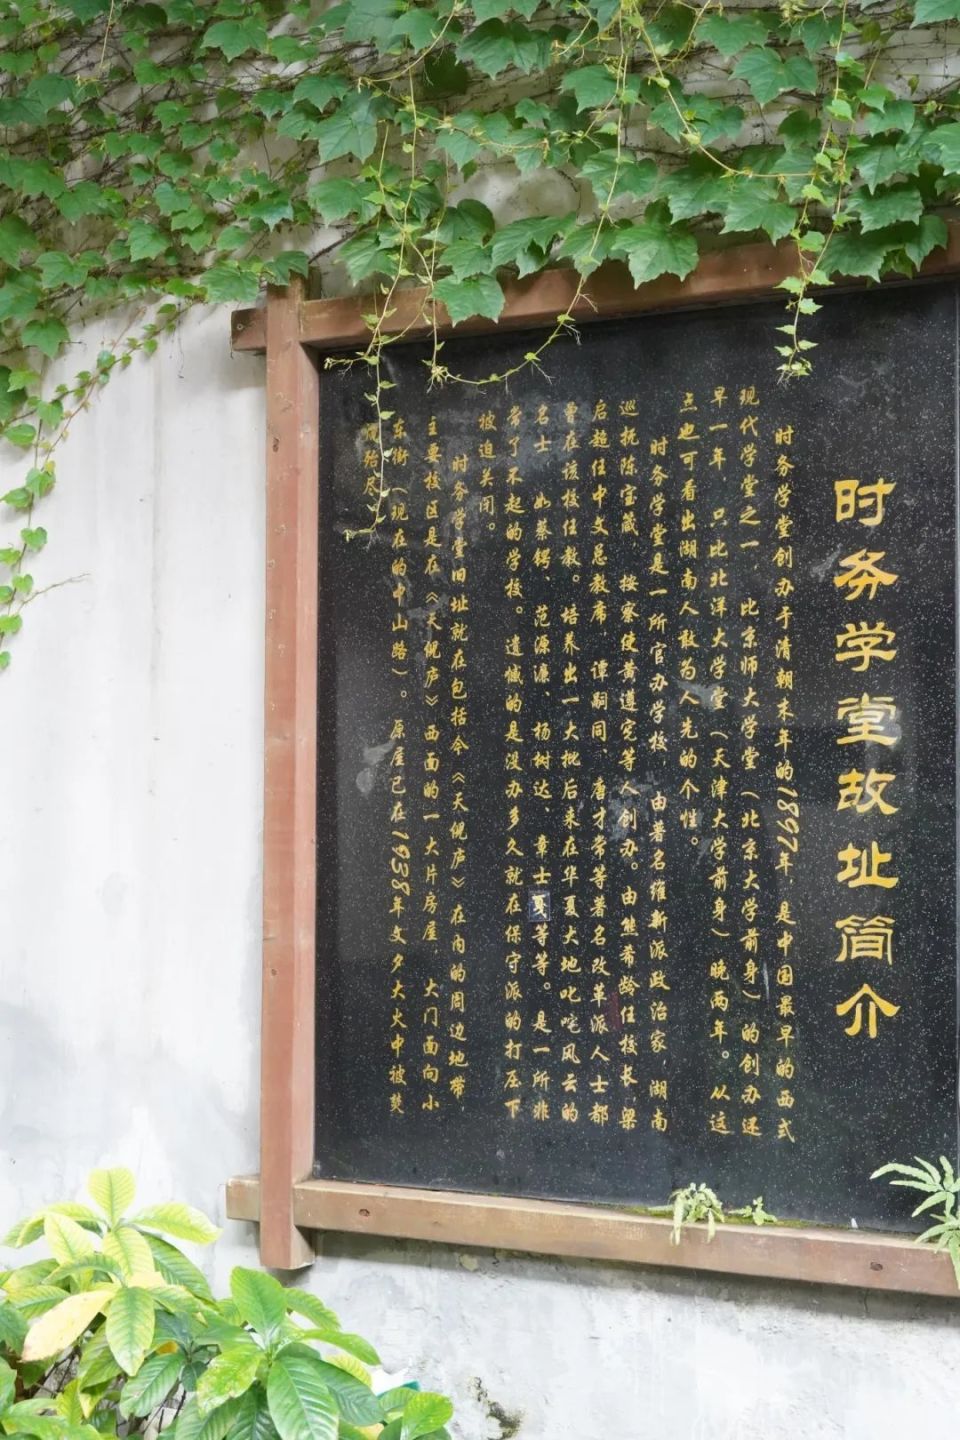 时务学堂故址简介
时务学堂创办于清朝末年的1897年，是中国最早的西式
现代学堂之一，比京师大学堂（北京大学前身）的创办还
早一年，只比北洋大学堂（天津大学前身）晚两年。从这
点也可看出湖南人敢为人先的个性。
时务学堂是一所官办学校，由著名维新派政治家，湖南
巡抚陈宝箴、按察使黄遵宪等人创办。由熊希龄任校长，梁
启超任中文总教席，谭嗣同、唐才常等著名改革派人士都
曾在该校任教。培养出一大批后来在华夏大地叱咤风云的
名士 如蔡锷、范源濂、杨树达、章士戛等等。是一所非
常了不起的学校。遗憾的是没办多久就在保守派的打压下
被迫关闭。
时务学堂旧址就在包括今《天倪庐》在内的周边地带，
主要校区是在《天倪庐》西面的一大片房屋，大门面向小
东街（现在的中山路）。原屋已在1938年文夕大火中被焚
毁殆尽